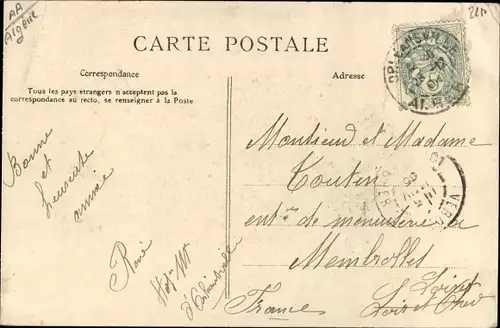 AA
Algérie
CARTE POSTALE
Correspondance
Adresse
Tous les pays étrangers n'acceptent pas la
correspondance au recto, se renseigner à la Poste
ORLÉANSVILLE
ALGER
Bonne
et
heureuse
année
René
d'Orléansville
Monsieur et Madame
Toutin
ent. de menuiserie
Membrolles
Loiret
Loir et Cher
France